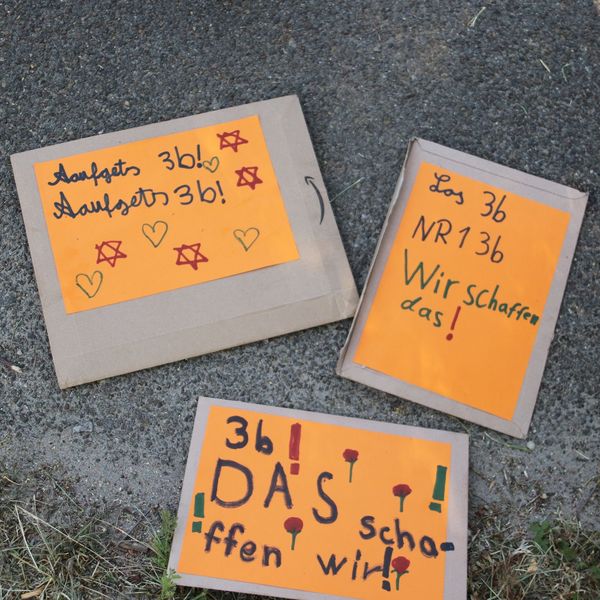 Aaufgets 3b!
Aaufgets 3b!
Los 3b
NR1 3b
Wir schaffen
das!
3b!
DAS scha-
ffen wir!